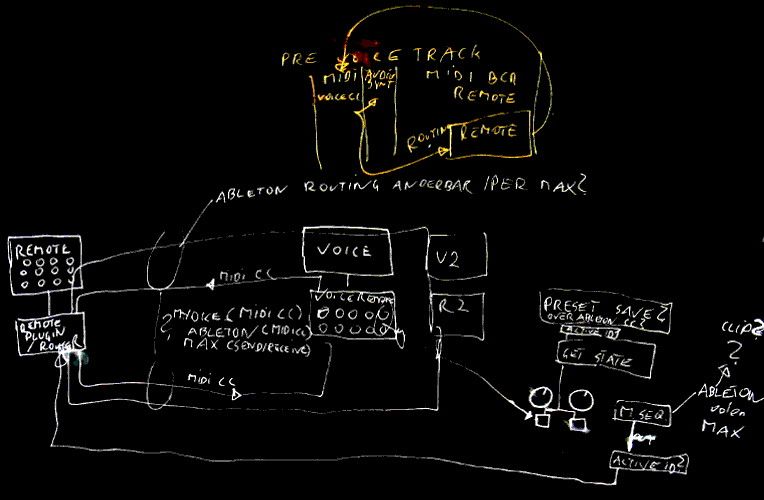 PRE VOICE TRACK
MIDI
VOICE CC
AUDIO
MIDI BCR
REMOTE
ROUTING
REMOTE
ABLETON ROUTING ANDERBAR /PER MAX?
REMOTE
VOICE
V2
MIDI CC
VOICE REMOTE
R2
REMOTE
PLUGIN
/ ROUTER
? MYVOICE (MIDI CC)
ABLETON (MIDI CC)
MAX (SEND/RECEIVE)
MIDI CC
PRESET SAVE?
OVER ABLETON CC?
ACTIVE ID?
GET STATE
CLIP?
?
ABLETON
MAX
M.SEQ
OUT
ACTIVE ID?